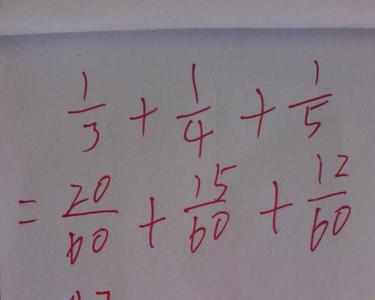 1/3 + 1/4 + 1/5
= 20/60 + 15/60 + 12/60